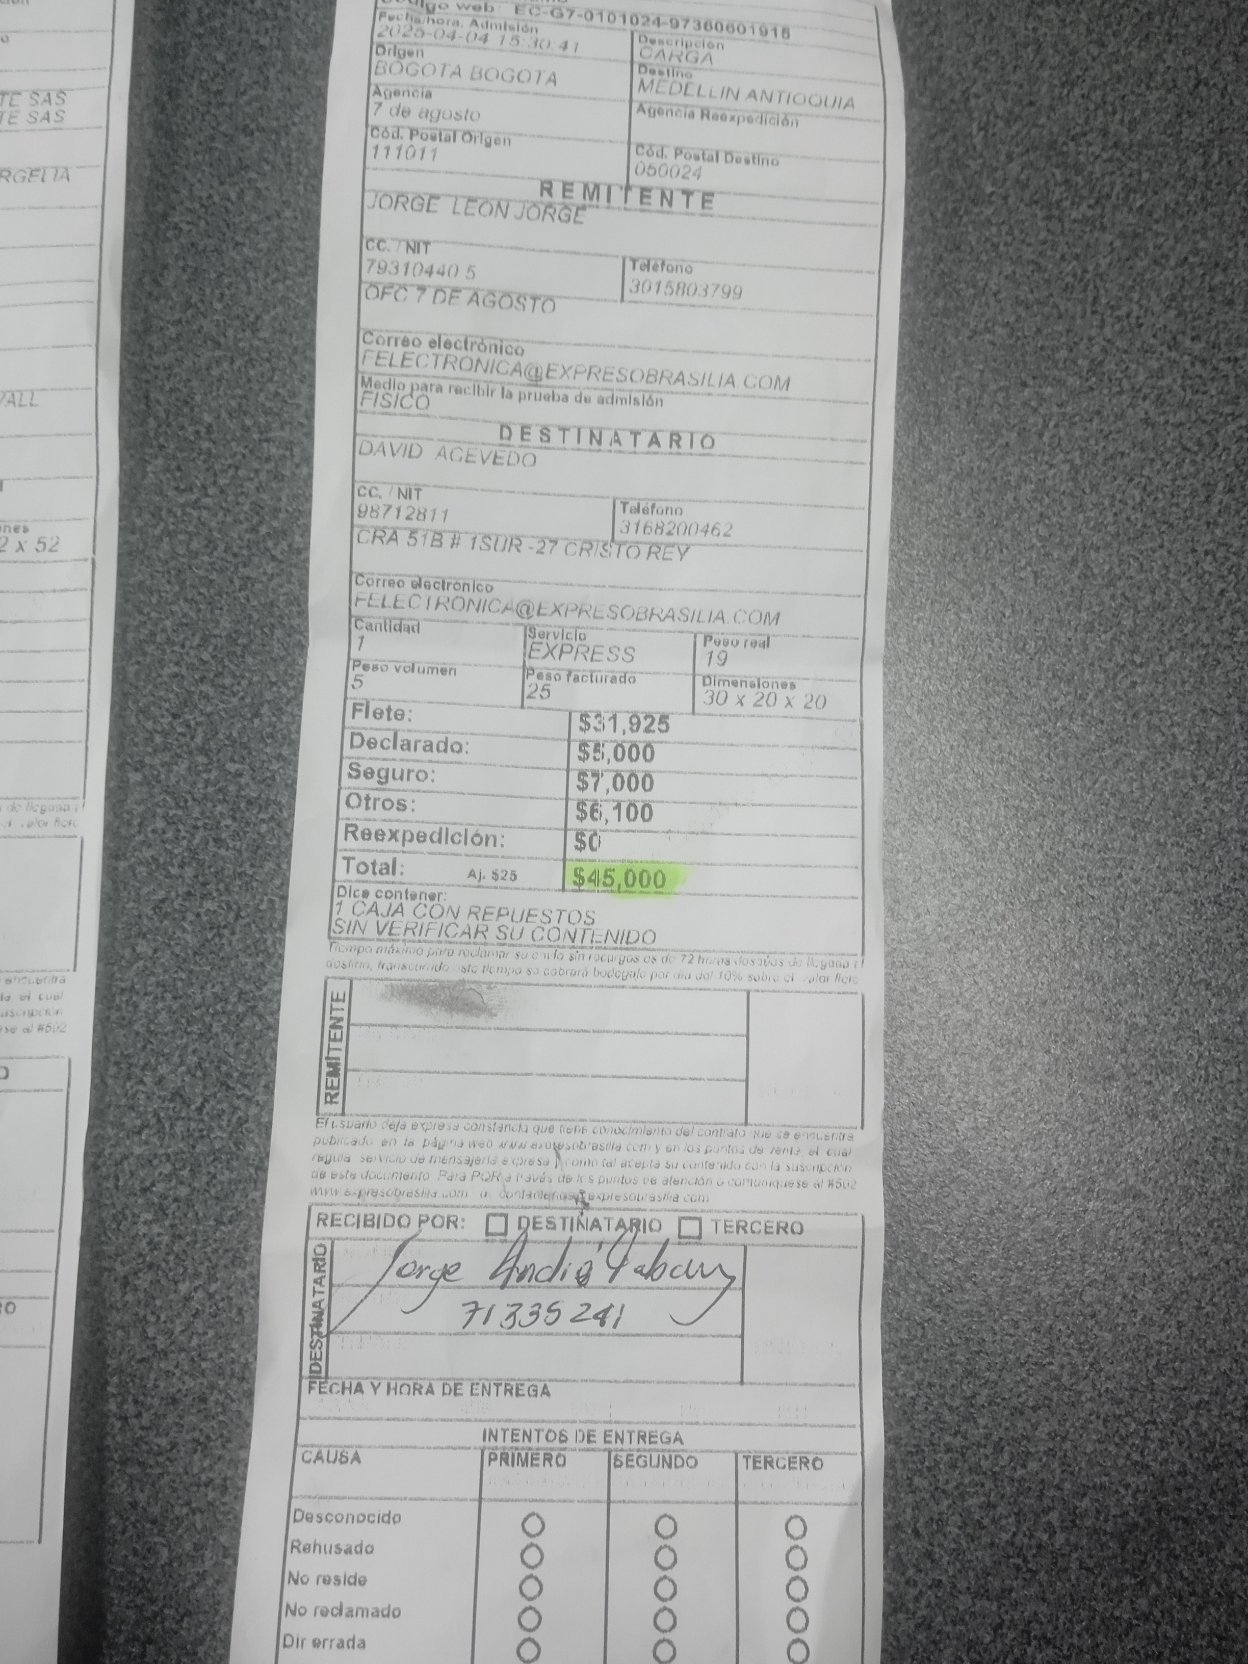 Código web: EC-G7-0101024-97360601916
Fecha/hora. Admisión
2025-04-04 15:30:41
Descripción
CARGA
Origen
BOGOTA BOGOTA
Destino
MEDELLIN ANTIOQUIA
Agencia
7 de agosto
Agencia Reexpedición
Cód. Postal Origen
111011
Cód. Postal Destino
050024
REMITENTE
JORGE LEON JORGE
CC. / NIT
79310440 5
Teléfono
3015803799
OFC 7 DE AGOSTO
Correo electrónico
FELECTRONICA@EXPRESOBRASILIA.COM
Medio para recibir la prueba de admisión
FISICO
DESTINATARIO
DAVID ACEVEDO
CC. / NIT
98712811
Teléfono
3168200462
CRA 51B # 1SUR -27 CRISTO REY
Correo electrónico
FELECTRONICA@EXPRESOBRASILIA.COM
Cantidad
1
Servicio
EXPRESS
Peso real
19
Peso volumen
5
Peso facturado
25
Dimensiones
30 x 20 x 20
Flete: $31,925
Declarado: $5,000
Seguro: $7,000
Otros: $6,100
Reexpedición: $0
Total: Aj. $25 $45,000
Dice contener:
1 CAJA CON REPUESTOS
SIN VERIFICAR SU CONTENIDO
Tiempo máximo para reclamar su envío sin recargos es de 72 horas después de llegada
destino, transcurrido este tiempo se cobrará bodegaje por día del 10% sobre el valor flete
REMITENTE
El usuario deja expresa constancia que tiene conocimiento del contrato que se encuentra
publicado en la página web www.expresobrasilia.com y en los puntos de venta, el cual
regula servicio de mensajería expresa y como tal acepta su contenido con la suscripción
de este documento. Para PQR a través de los puntos de atención o comuníquese al #502
www.expresobrasilia.com
RECIBIDO POR: DESTINATARIO TERCERO
DESTINATARIO
Jorge
71335241
FECHA Y HORA DE ENTREGA
INTENTOS DE ENTREGA
CAUSA PRIMERO SEGUNDO TERCERO
Desconocido
Rehusado
No reside
No reclamado
Dir errada
TE SAS
TE SAS
RGELIA
VALL
nes
2 x 52